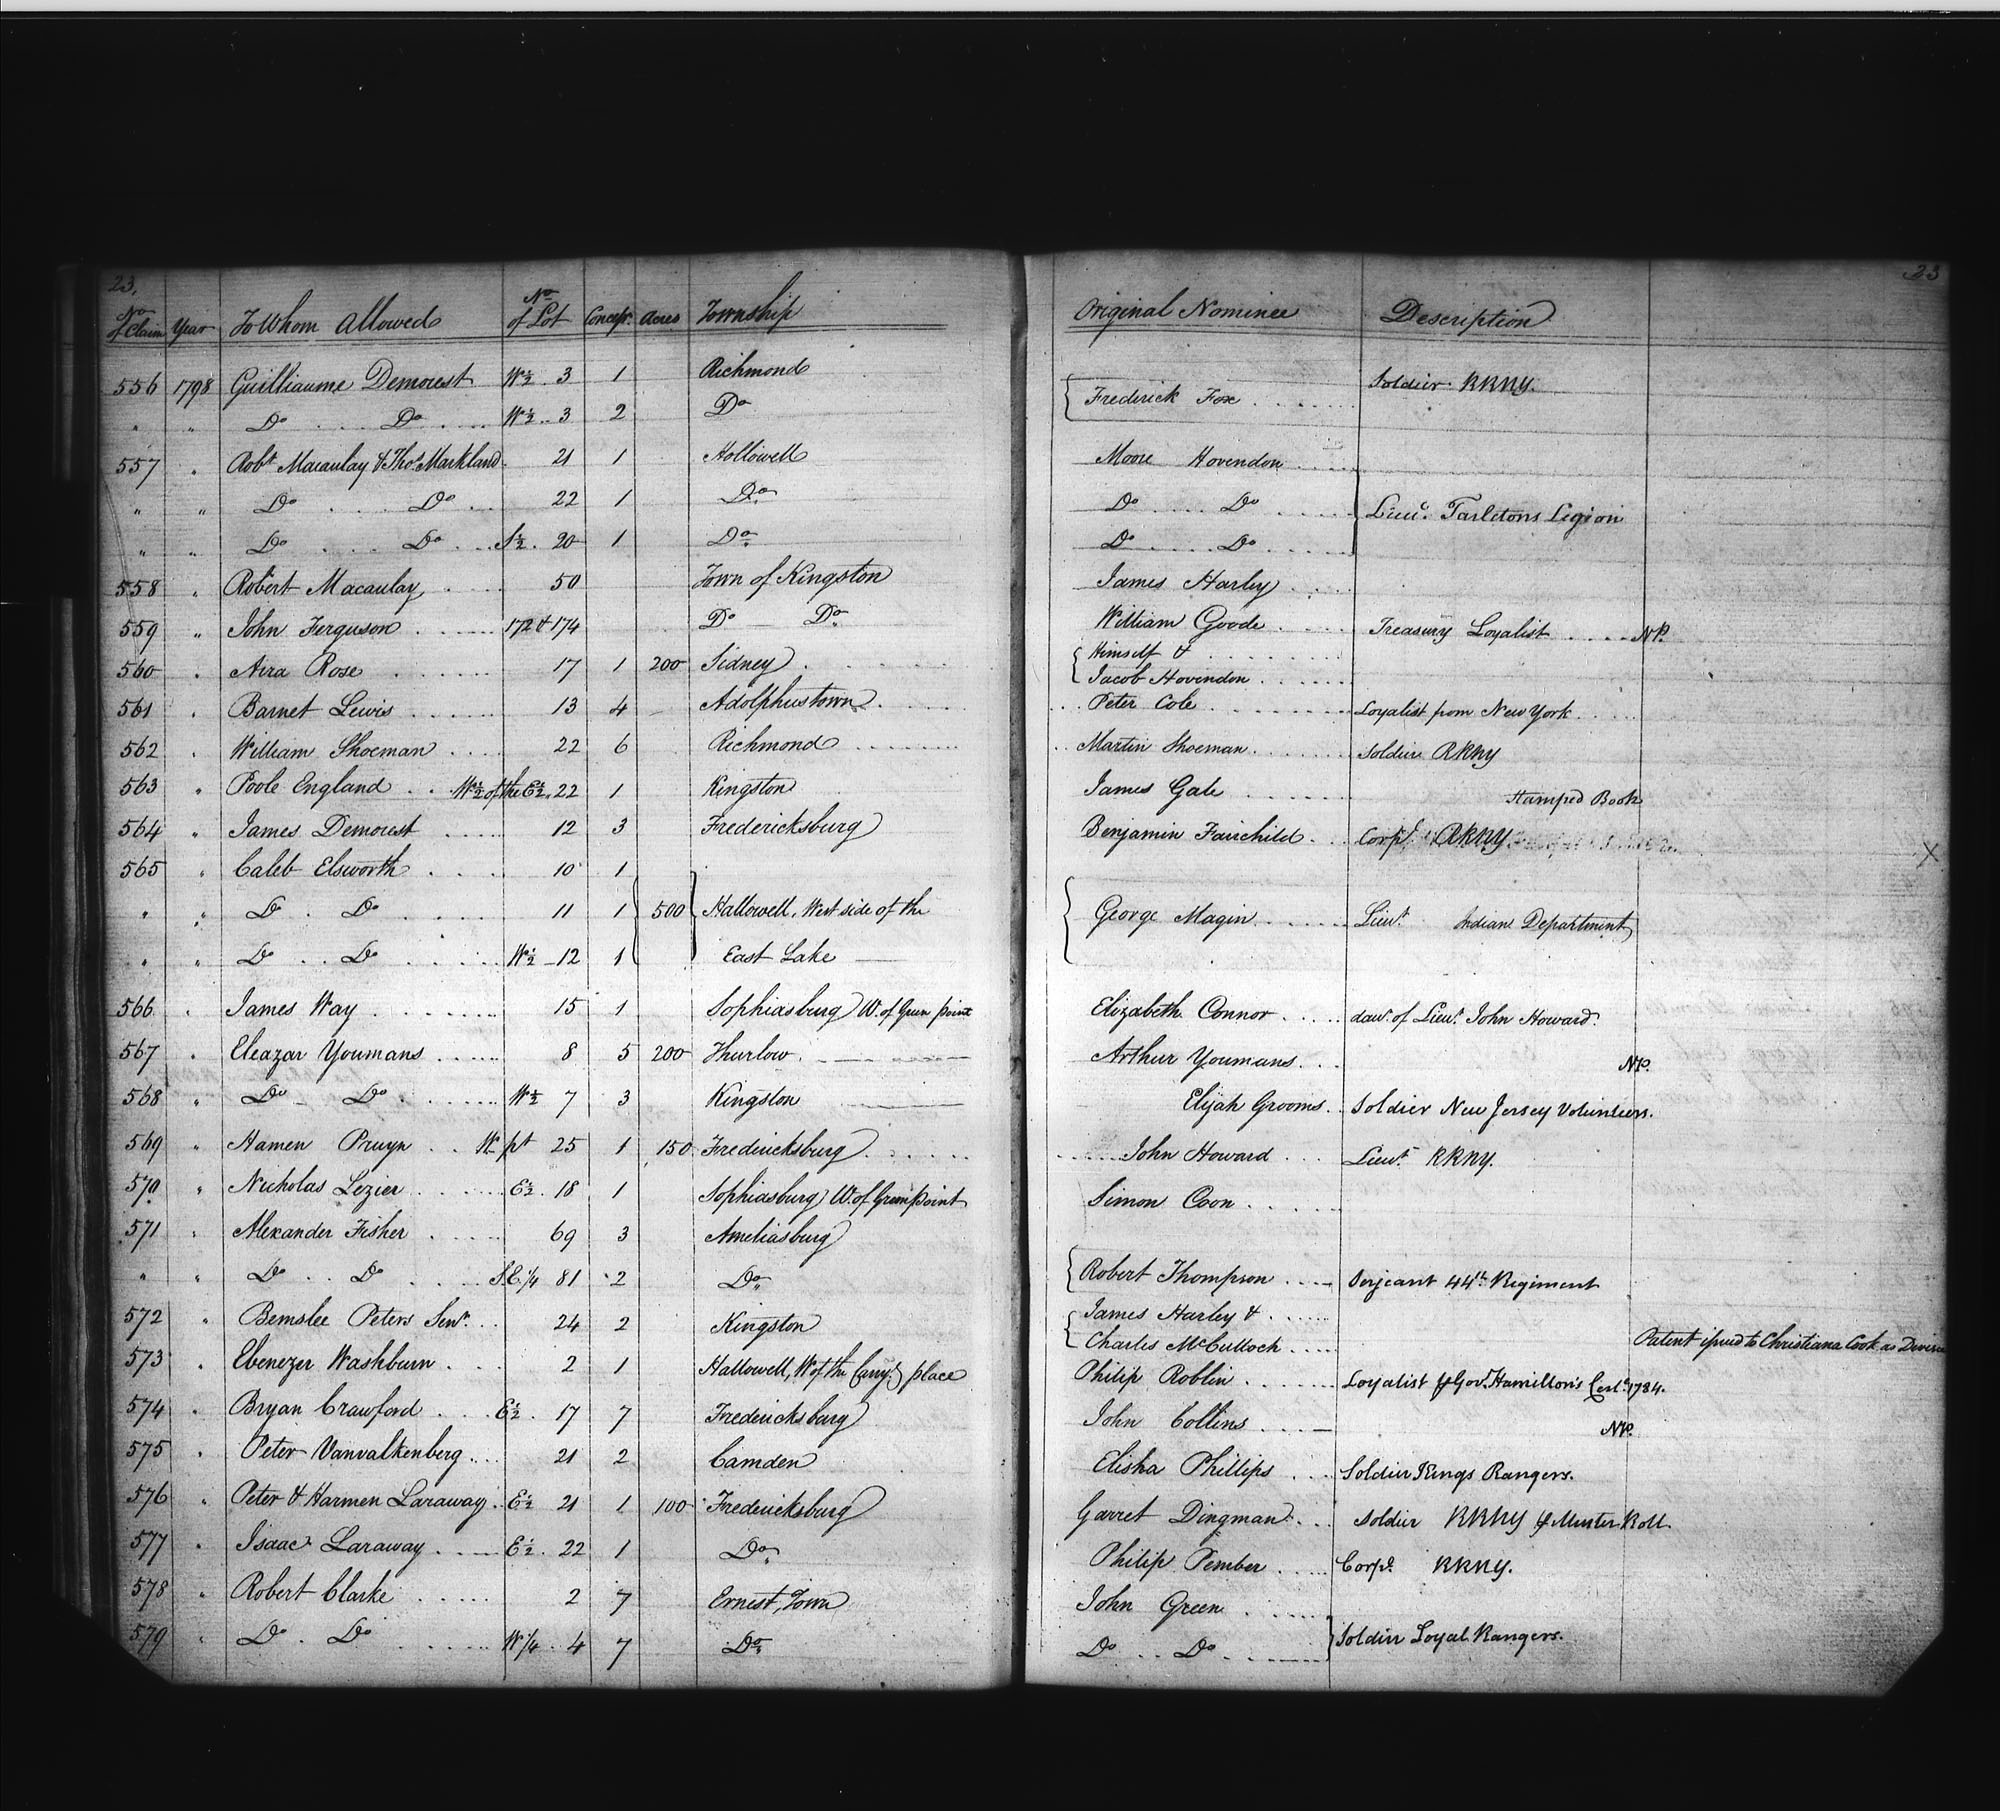 23. 23
No of Claim Year To Whom Allowed No of Lot Concessn. Acres Township Original Nominee Description
556 1798 Guilliaume Demorest W½ 3 1 Richmond Frederick Fox Soldier RRNY.
" " Do Do W½ 3 2 Do
557 " Robt Macaulay & Thos Markland 21 1 Hollowell Moore Hovendon
" " Do Do 22 1 Do Do Do Lieut. Tarletons Legion
" " Do Do S½ 20 1 Do Do Do
558 " Robert Macaulay 50 Town of Kingston James Harley
559 " John Ferguson 172 & 174 Do Do William Goode Treasury Loyalist NP.
560 " Azra Rose 17 1 200 Sidney Himself &
Jacob Hovendon
561 " Barnet Lewis 13 4 Adolphustown Peter Cole Loyalist from New York
562 " William Shoeman 22 6 Richmond Martin Shoeman Soldier RRNY
563 " Poole England W½ of the E½ 22 1 Kingston James Gale Stamped Book
564 " James Demorest 12 3 Fredericksburg Benjamin Fairchild Corpl. RRNY X
565 " Caleb Elsworth 10 1
" " Do Do 11 1 500 Hallowell, West side of the George Magin Lieut. Indian Department
" " Do Do W½ 12 1 East Lake
566 " James Way 15 1 Sophiasburg W. of Green Point Elizabeth Connor daur. of Lieut. John Howard.
567 " Eleazar Youmans 8 5 200 Thurlow Arthur Youmans NP.
568 " Do Do W½ 7 3 Kingston Elijah Grooms Soldier New Jersey Volunteers.
569 " Hamen Pruyn W pt 25 1 150 Fredericksburg John Howard Lieut. RRNY.
570 " Nicholas Lezier E½ 18 1 Sophiasburg W. of Green Point Simon Coon
571 " Alexander Fisher 69 3 Ameliasburg
" " Do Do S.E. ¼ 81 2 Do Robert Thompson Serjeant 44th Regiment
572 " Bemslee Peters Senr. 24 2 Kingston James Harley &
Charles McCulloch Patent issued to Christiana Cook as Devisee
573 " Ebenezer Washburn 2 1 Hallowell, W of the Carryg. place Philip Roblin Loyalist p Govr. Hamilton's Cert. 1784.
574 " Bryan Crawford E½ 17 7 Fredericksburg John Collins NP.
575 " Peter Vanvalkenberg 21 2 Camden Elisha Phillips Soldier Kings Rangers.
576 " Peter & Harmen Laraway E½ 21 1 100 Fredericksburg Garret Dingman Soldier RRNY p Muster Roll.
577 " Isaac Laraway E½ 22 1 Do Philip Pember Corpl. RRNY.
578 " Robert Clarke 2 7 Ernest, Town John Green
579 " Do Do W¼ 4 7 Do Do Do Soldier Loyal Rangers.